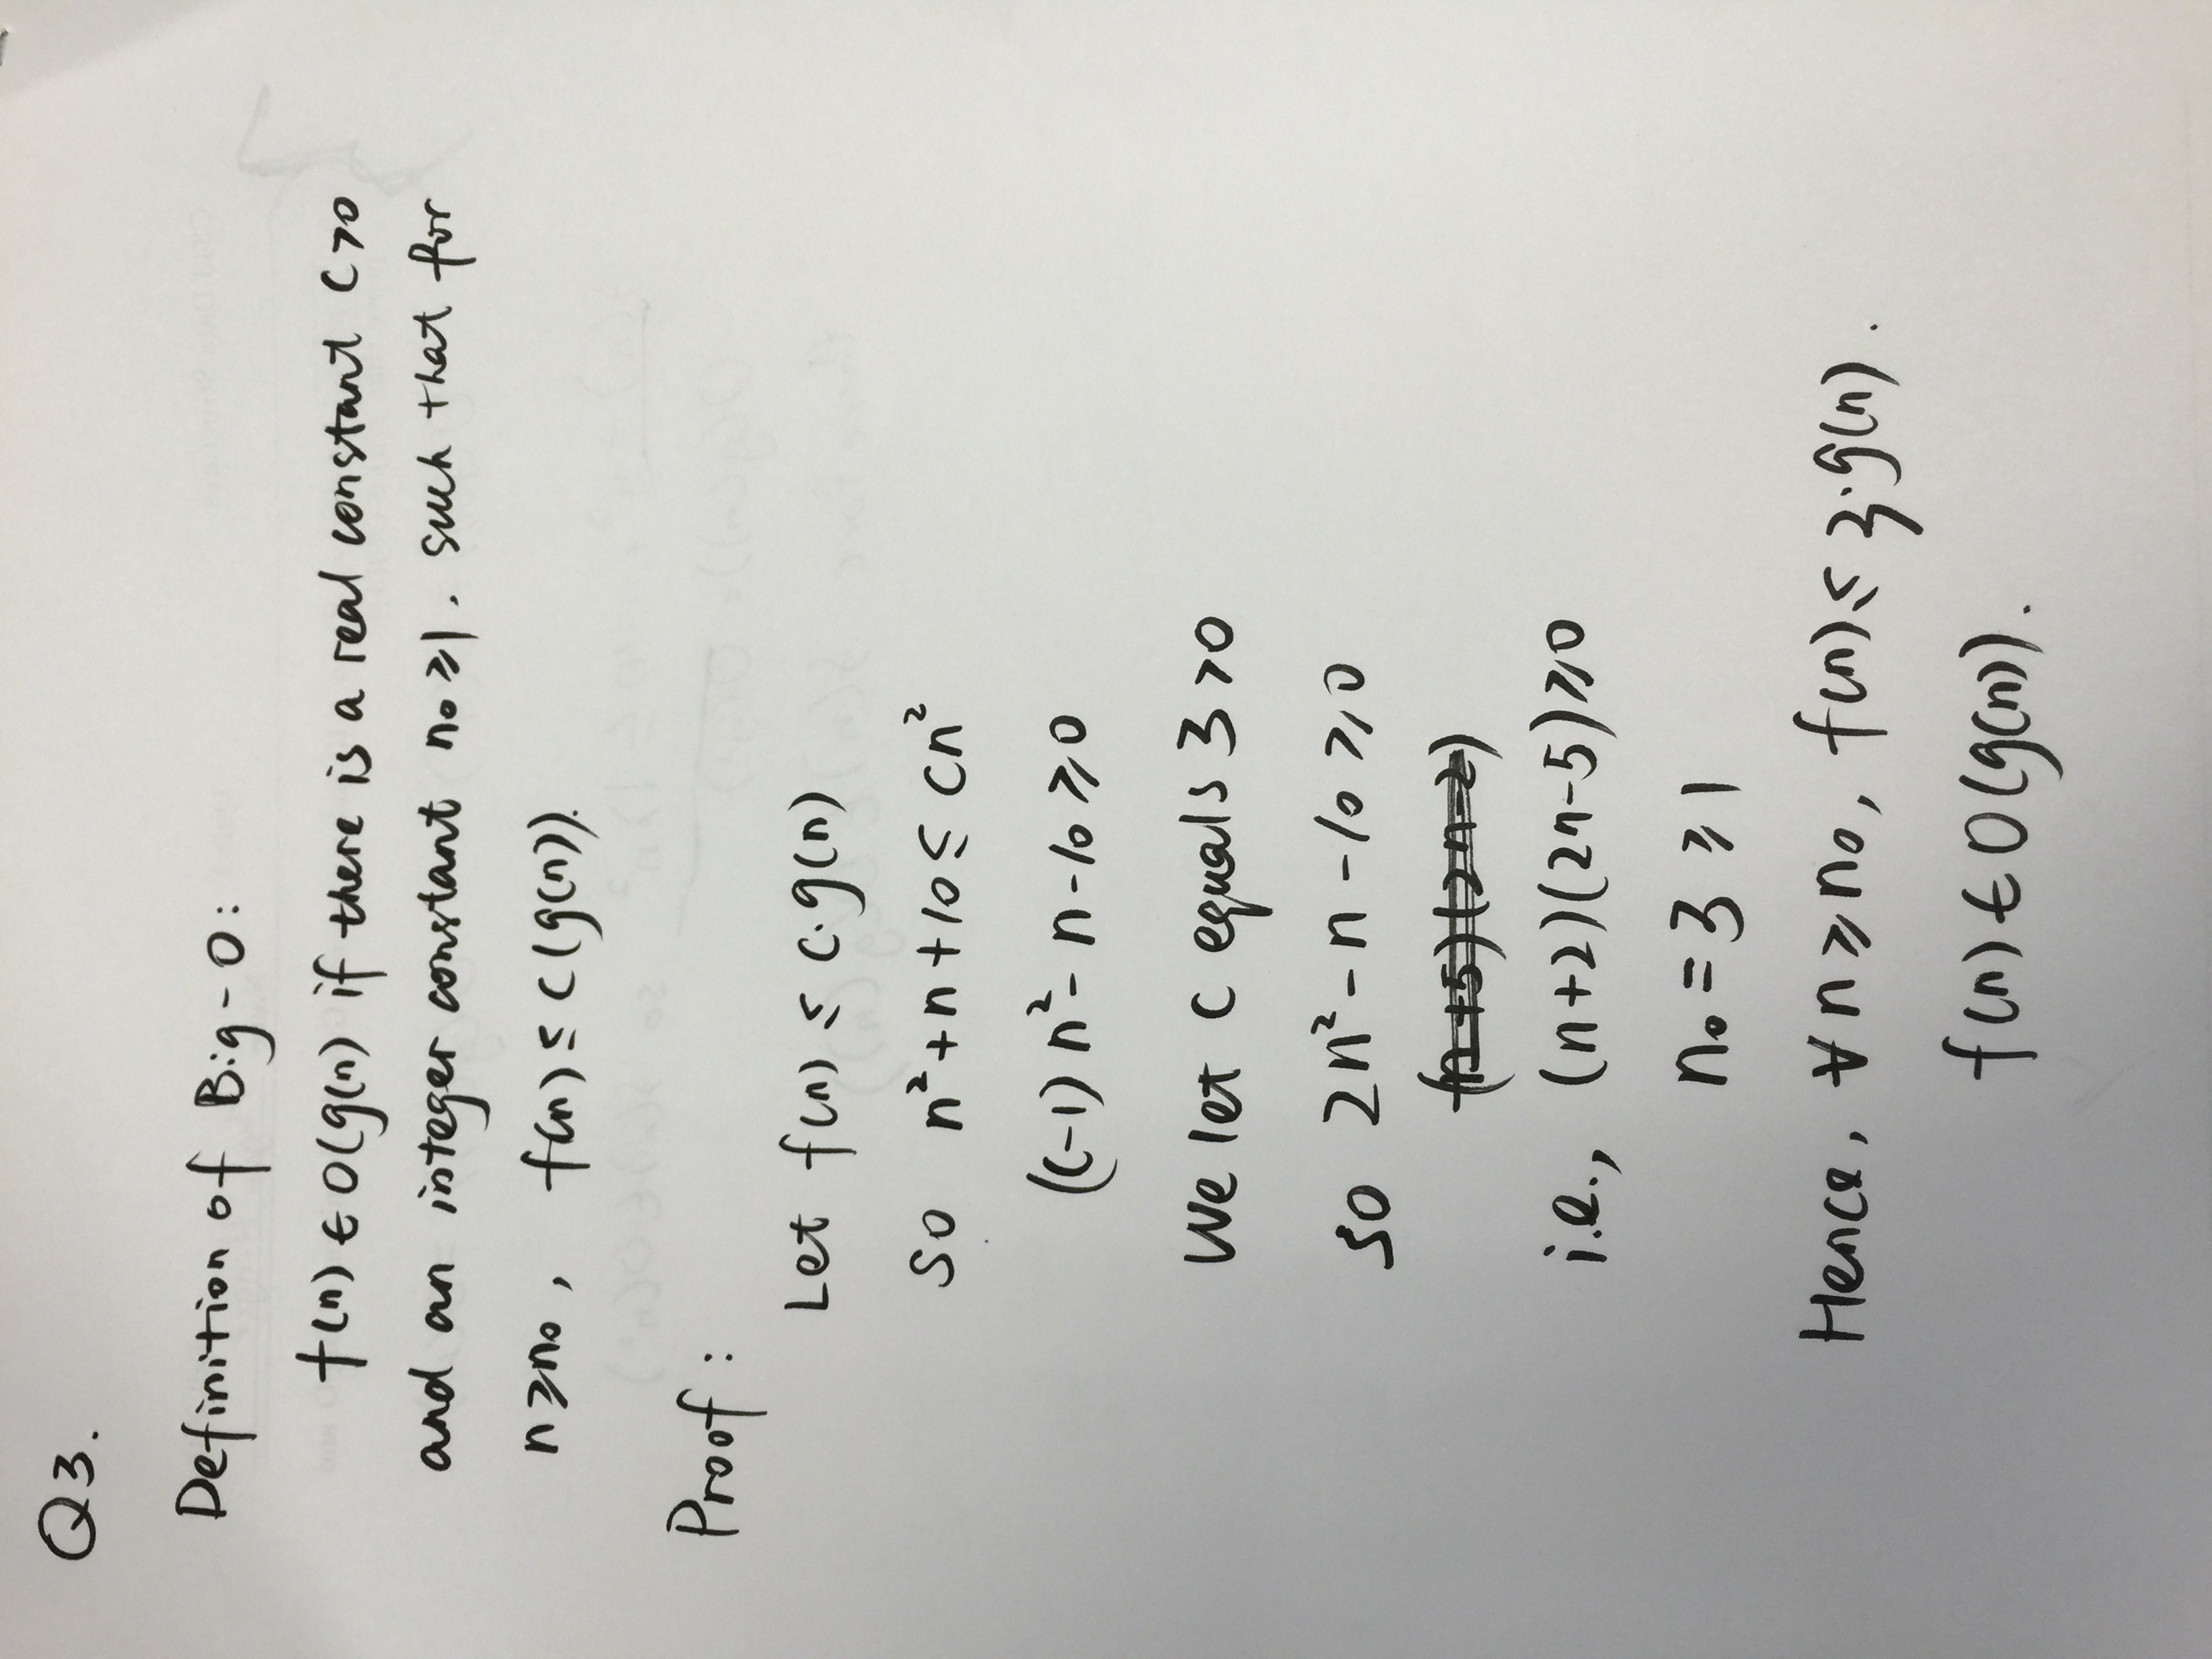 Q3.
Definition of Big-O:
f(n) ∈ O(g(n) if there is a real constant C>0
and an integer constant n₀≥1. such that for
n≥n₀, f(n) ≤ C(g(n)).
Proof:
Let f(n) ≤ C·g(n)
so n²+n+10 ≤ Cn²
(C-1)n²-n-10≥0
We let C equals 3>0
so 2n²-n-10≥0
(n+5)(2n-2)
i.e., (n+2)(2n-5)≥0
n₀=3≥1
Hence, ∀n≥n₀, f(n)≤3·g(n).
f(n)∈O(g(n)).